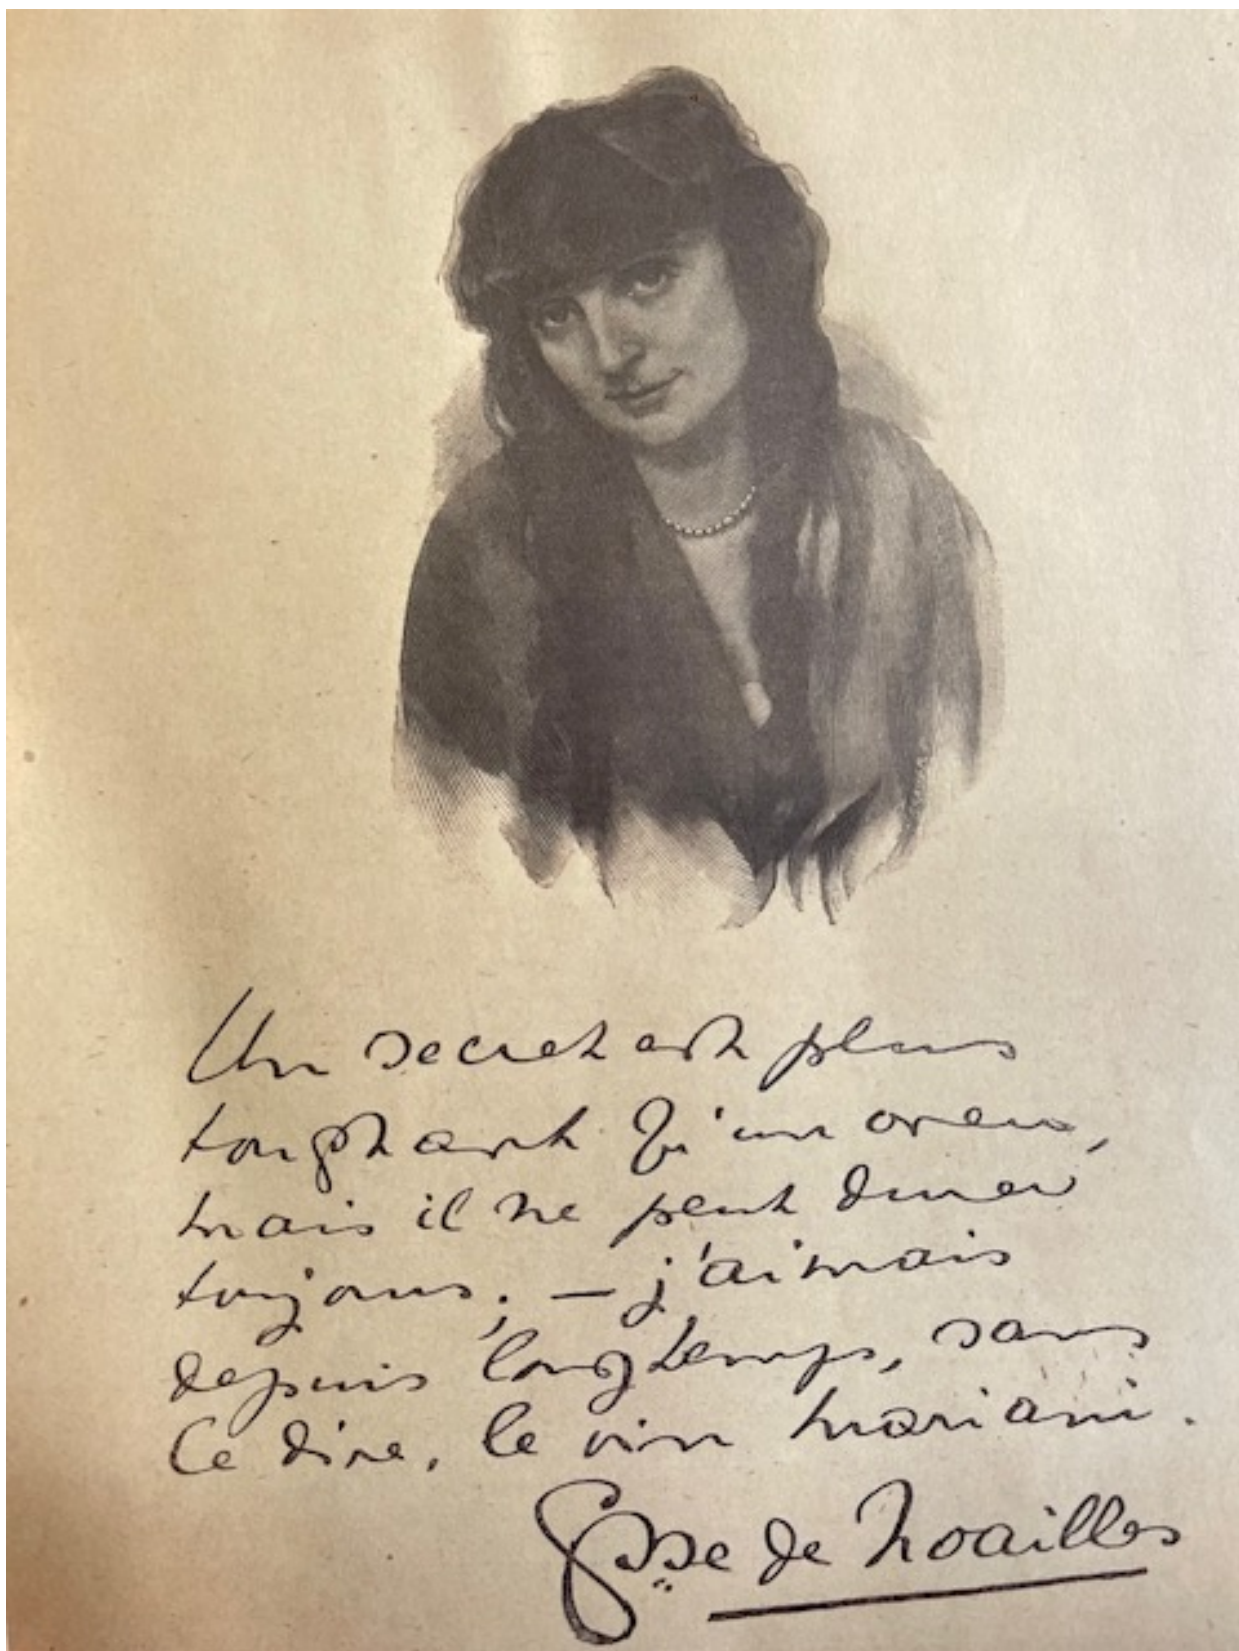 Un secret est plus
touchant qu'un aveu,
mais il ne peut durer
toujours; — j'aimais
depuis longtemps, sans
le dire, le vin Mariani.
Ctsse de Noailles